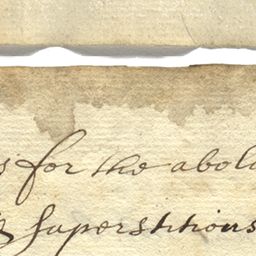 s for the abol
& Superstitious